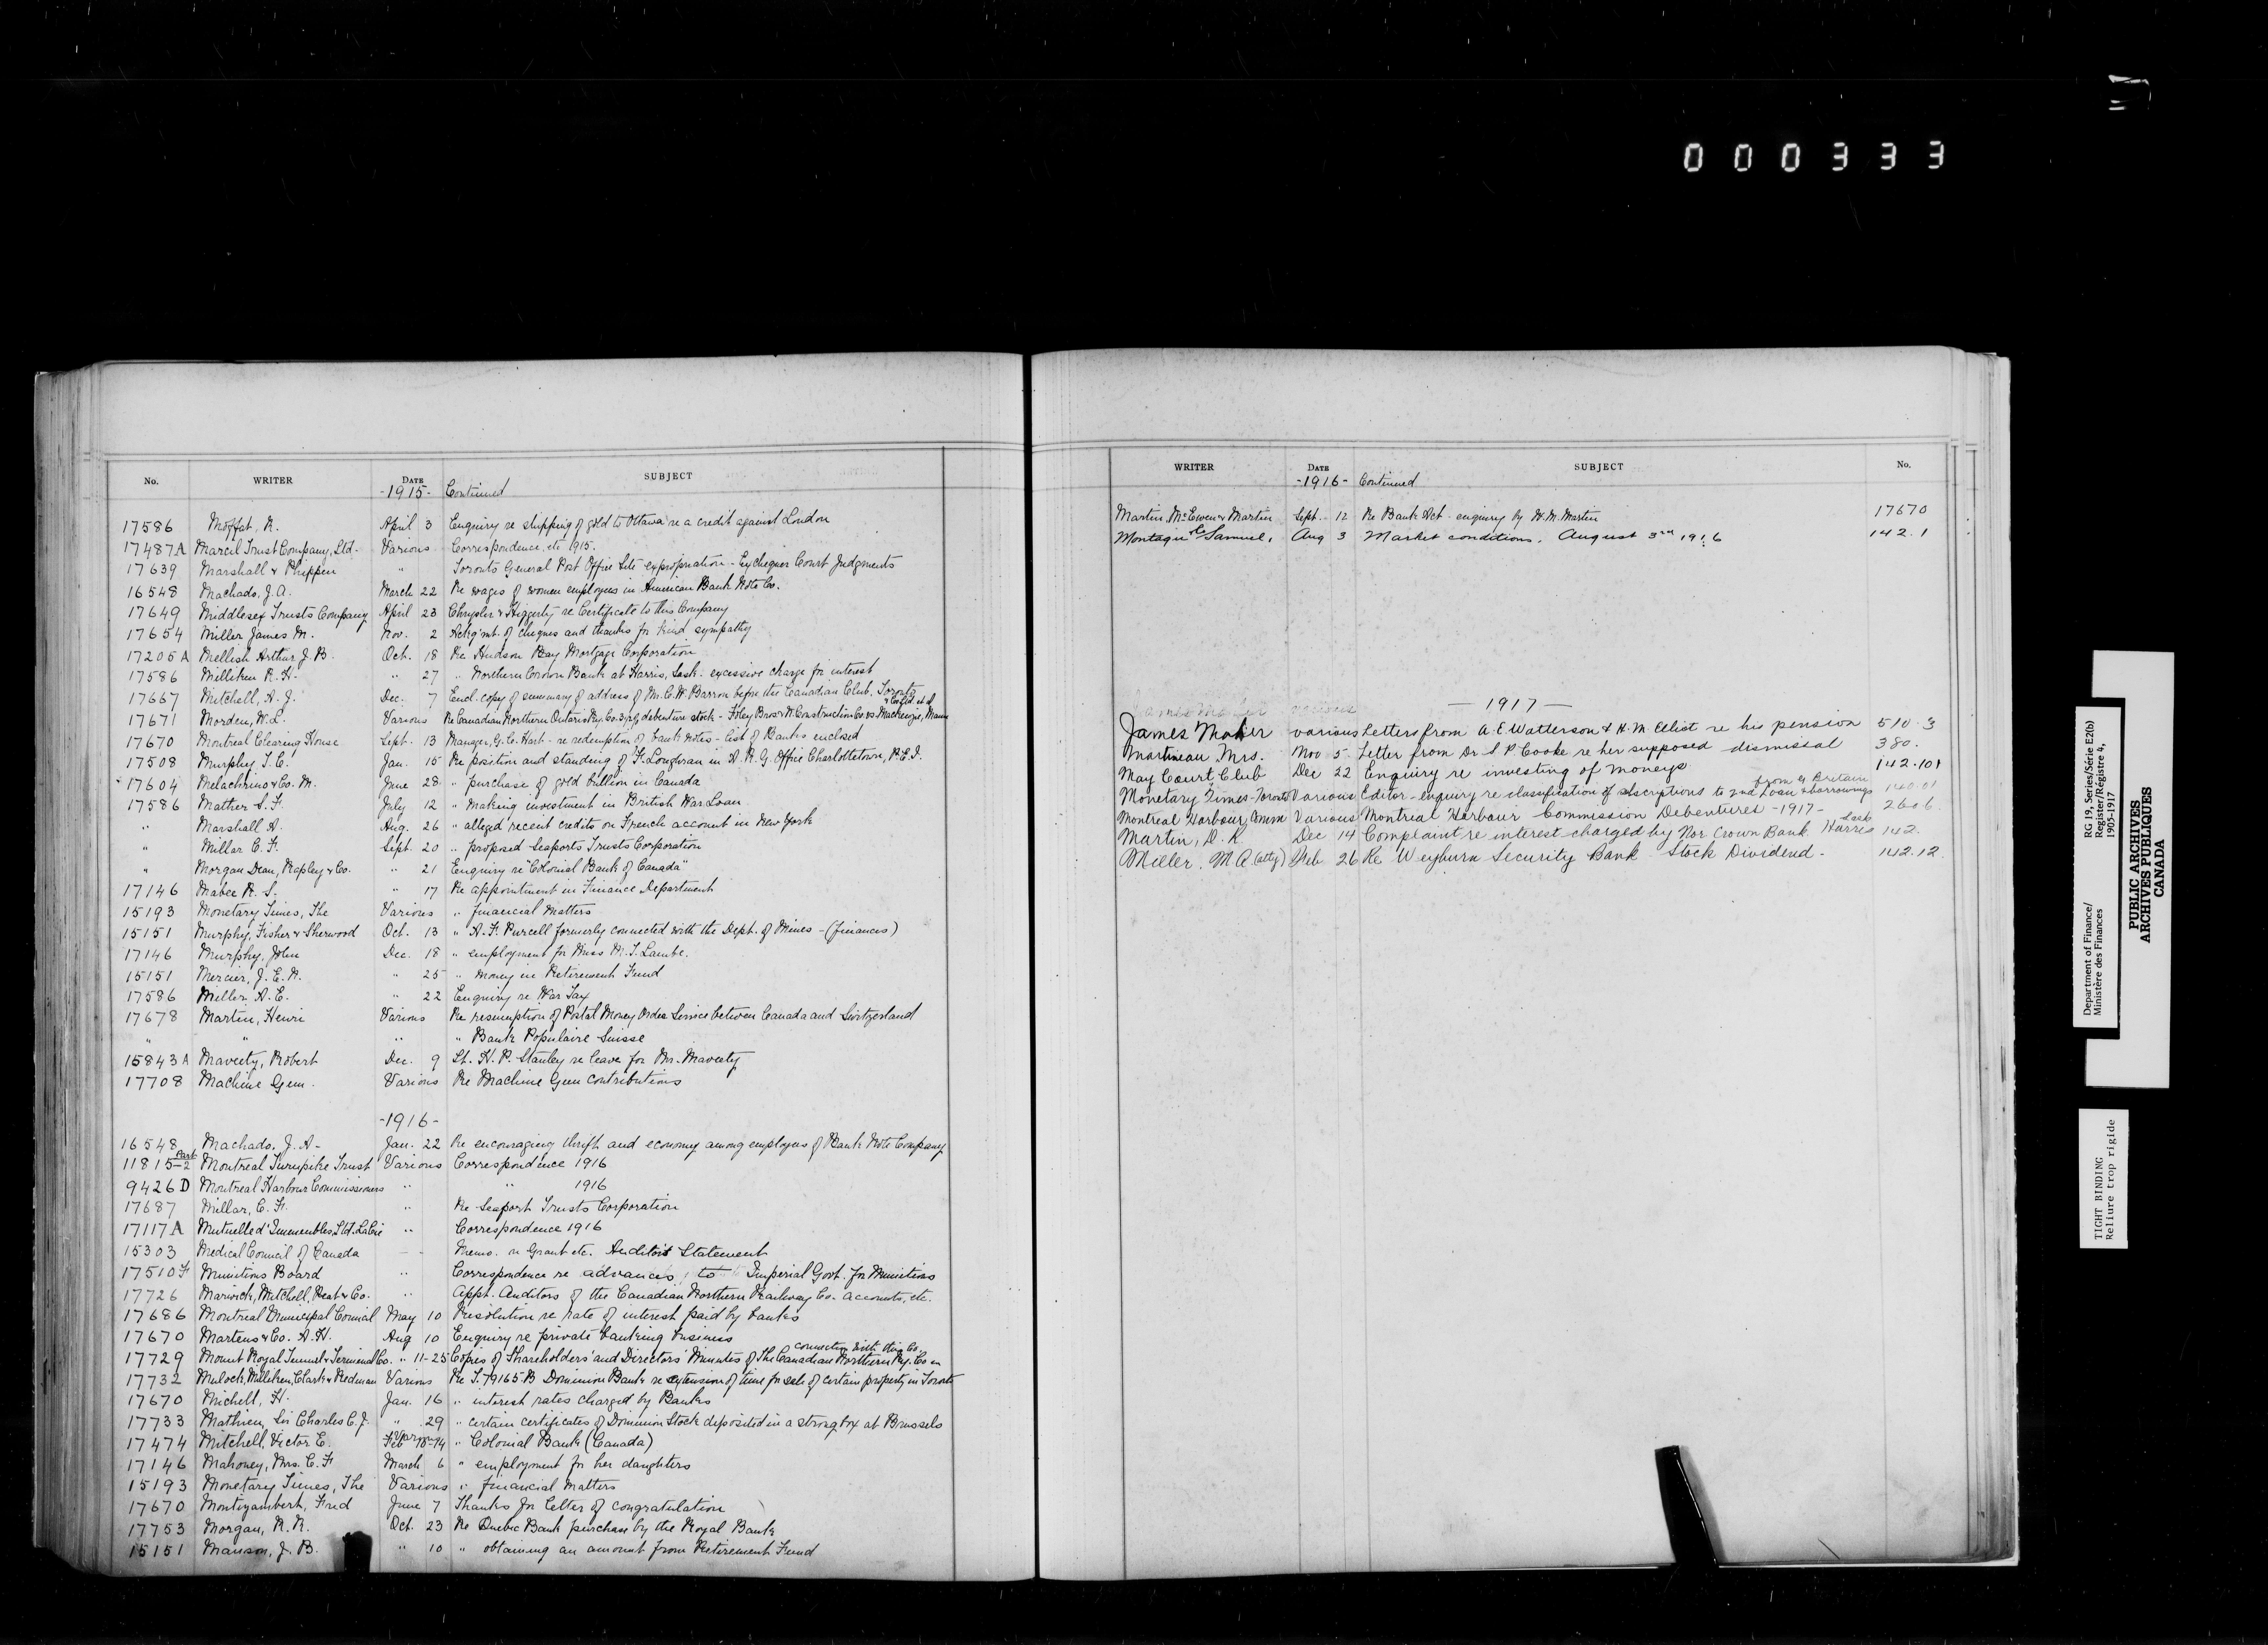 000333
No. WRITER DATE SUBJECT
-1915- Continued
17586 Moffat, R. April 3 Enquiry re shipping of gold to Ottawa re a credit against London
17487A Marcil Trust Company, Ltd. Various Correspondence, etc 1915.
17639 Marshall & Phippen " Toronto General Post Office Site expropriation - Exchequer Court Judgments
16548 Machado, J.A. March 22 Re wages of women employees in American Bank Note Co.
17649 Middlesex Trusts Company April 23 Chrysler & Higgerty re Certificate to this Company
17654 Miller James M. Nov. 2 Ackg'mt. of cheques and thanks for kind sympathy
17205A Mellish Arthur J.B. Oct. 18 Re Hudson Bay Mortgage Corporation
17586 Milliken R.H. " 27 " Northern Crown Bank at Harris, Sask. excessive charge for interest
17667 Mitchell, A.J. Dec. 7 Encl. copy of summary of address of Mr. C.W. Barron before the Canadian Club, Toronto
17671 Morden, W.L. Various Re Canadian Northern Ontario Ry. Co. debenture stock - Foley Bros Construction Co vs Mackenzie, Mann
17670 Montreal Clearing House Sept. 13 Manager, G.C. Hart - re redemption of bank notes - list of Banks enclosed
17508 Murphy T.C. Jan. 15 Re position and standing of F. Loughran in A.R.G. Office Charlottetown, P.E.I.
17604 Melachrino & Co. M. June 28 " purchase of gold bullion in Canada
17586 Mather S.F. July 12 " making investment in British War Loan
" Marshall A. Aug. 26 " alleged recent credits on French account in New York
" Millar C.F. Sept. 20 " proposed Seaports Trusts Corporation
" Morgan Dean, Rapley & Co. " 21 Enquiry re "Colonial Bank of Canada"
17146 Mabee R.S. " 17 Re appointment in Finance Department
15193 Monetary Times, The Various " financial Matters
15151 Murphy, Fisher & Sherwood Oct. 13 " A.F. Purcell formerly connected with the Dept. of Mines - (finances)
17146 Murphy, John Dec. 18 " employment for Miss M.T. Lambe.
15151 Mercier, J.E.N. " 25 " Money in Retirement Fund
17586 Miller, A.E. " 22 Enquiry re War Tax
17678 Martin, Henri Various Re resumption of Postal Money Order Service between Canada and Switzerland
" " " " Bank Populaire Suisse
15843A Maveety, Robert Dec. 9 Lt. H.P. Stanley re leave for Mr. Maveety
17708 Machine Gun. Various Re Machine Gun Contributions
-1916-
16548 Machado, J.A. Jan. 22 Re encouraging thrift and economy among employees of Bank Note Company
11815 Part-2 Montreal Turnpike Trust Various Correspondence 1916
9426D Montreal Harbour Commissioners " " 1916
17687 Millar, C.F. " Re Seaport Trusts Corporation
17117A Mutuelle d'Immeubles, Ltd. La Cie " Correspondence 1916
15303 Medical Council of Canada Memo. re Grant etc. Auditors Statement
17510F Munitions Board " Correspondence re advances, to Imperial Govt. for Munitions
17726 Marwick, Mitchell, Peat & Co. " Appt. Auditors of the Canadian Northern Railway Co. accounts, etc.
17686 Montreal Municipal Council May 10 Resolution re rate of interest paid by banks
17670 Martens & Co. A.H. Aug 10 Enquiry re private banking business
17729 Mount Royal Tunnel & Terminal Co. " 11-25 Copies of Shareholders' and Directors' Minutes of The Canadian Northern Ry. Co in connection with this Co.
17732 Mulock, Milliken, Clark & Redman Various Re T.79165-B Dominion Bank re extension of time for sale of certain property in Toronto
17670 Michell, H. Jan. 16 " interest rates charged by Banks
17733 Mathieu, Sir Charles C.J. " 29 " certain certificates of Dominion Stock deposited in a strong box at Brussels
17474 Mitchell, Victor E. Feb " Colonial Bank (Canada)
17146 Mahoney, Mrs. C.F. March 6 " employment for her daughters
15193 Monetary Times, The Various " financial Matters
17670 Montizambert, Fred June 7 Thanks for letter of congratulation
17753 Morgan, R.R. Oct. 23 Re Quebec Bank purchase by the Royal Bank
15151 Manson, J.B. " 10 " obtaining an amount from Retirement Fund
WRITER DATE SUBJECT No.
-1916- Continued
Martin, McEwen & Martin Sept. 12 Re Bank Act - enquiry by W.M. Martin 17670
Montague Samuel, Aug 3 Market conditions. August 3rd 1916 142.1
— 1917 —
James Maher various Letters from A.E. Watterson & H.M. Elliot re his pension 510.3
Martineau Mrs. Nov 5. Letter from Dr. S P Cooke re her supposed dismissal 380.
May Court Club Dec 22 Enquiry re investing of moneys 142.101
Monetary Times-Toronto Various Editor - enquiry re classification of subscriptions to 2nd Loan & borrowings from G Britain 140.01
Montreal Harbour Comm Various Montreal Harbour Commission Debentures -1917- 2606
Martin, D.R. Dec 14 Complaint re interest charged by Nor Crown Bank Harris Sask 142.
Miller. M.A. (atty) Feb 26 Re Weyburn Security Bank Stock Dividend - 142.12
Department of Finance/
Ministère des Finances
RG 19, Series/Série E2(b)
Register/Régistre 4,
1905-1917
PUBLIC ARCHIVES
ARCHIVES PUBLIQUES
CANADA
TIGHT BINDING
Reliure trop rigide